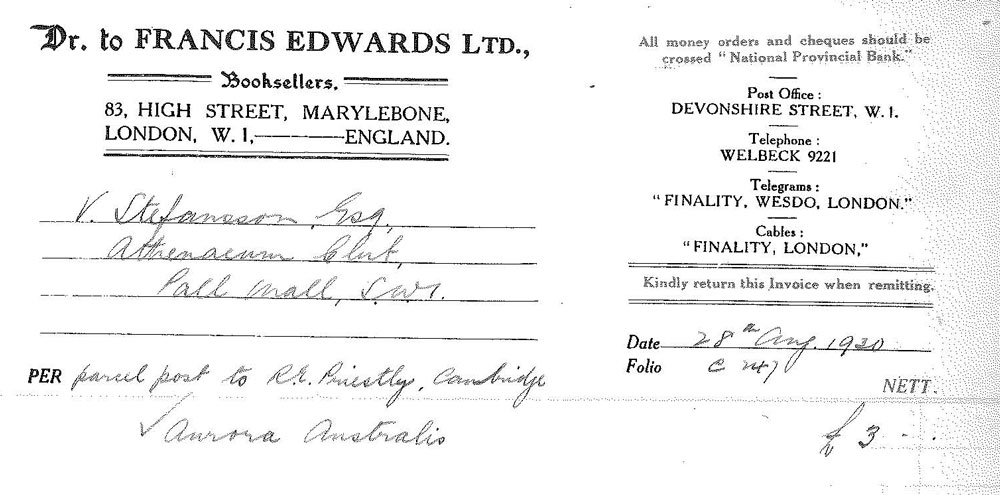 Dr. to FRANCIS EDWARDS LTD.,
Booksellers.
83, HIGH STREET, MARYLEBONE,
LONDON, W. 1,————ENGLAND.
All money orders and cheques should be
crossed "National Provincial Bank."
Post Office :
DEVONSHIRE STREET, W. 1.
Telephone :
WELBECK 9221
Telegrams :
"FINALITY, WESDO, LONDON."
Cables :
"FINALITY, LONDON,"
Kindly return this Invoice when remitting.
V. Stefansson, Esq,
Athenaeum Club,
Pall Mall, S.W.1.
Date 28th Aug. 1930
Folio C 247
NETT.
PER parcel post to R.E. Priestly, Cambridge
✓ Aurora Australis
£ 3 - .